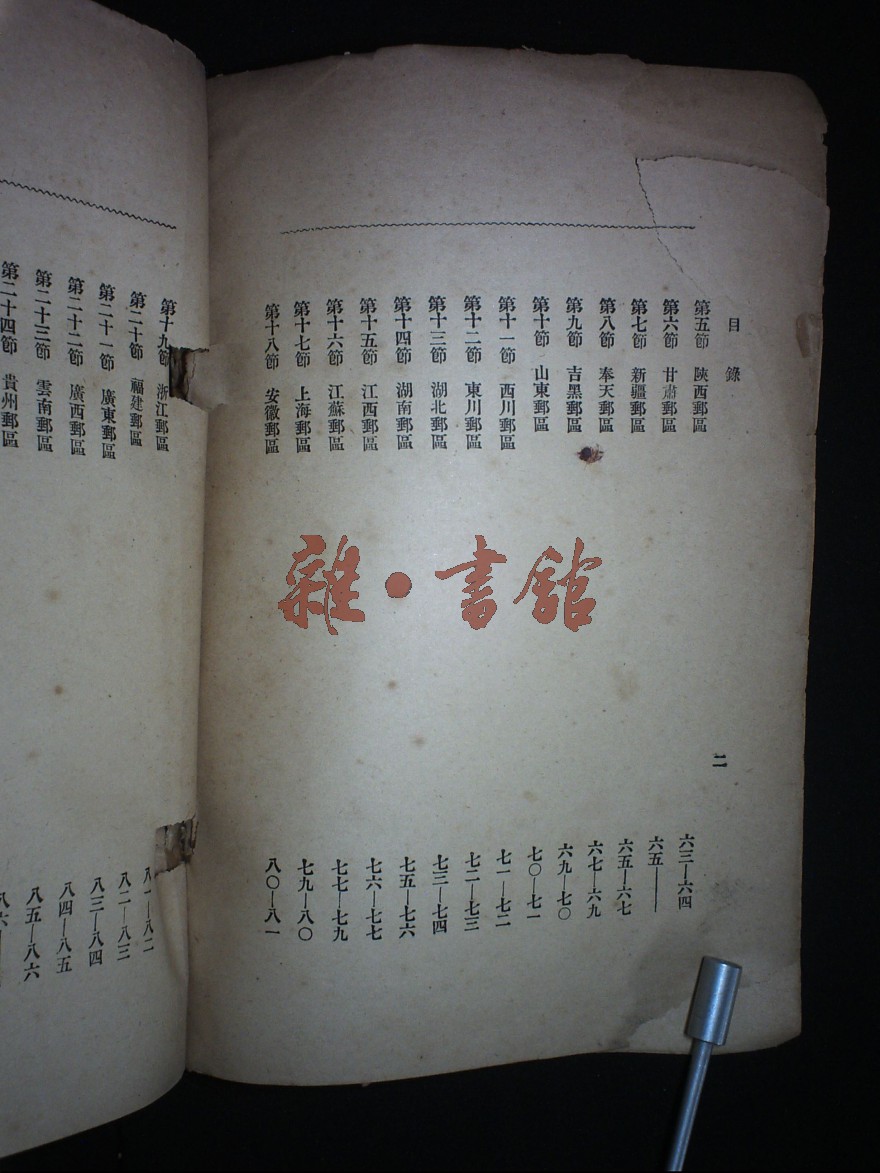 目 錄
二
第五節 陝西郵區 六三—六四
第六節 甘肅郵區 六五——
第七節 新疆郵區 六五—六七
第八節 奉天郵區 六七—六九
第九節 吉黑郵區 六九—七〇
第十節 山東郵區 七〇—七一
第十一節 西川郵區 七一—七二
第十二節 東川郵區 七二—七三
第十三節 湖北郵區 七三—七四
第十四節 湖南郵區 七五—七六
第十五節 江西郵區 七六—七七
第十六節 江蘇郵區 七七—七九
第十七節 上海郵區 七九—八〇
第十八節 安徽郵區 八〇—八一
第十九節 浙江郵區 八一—八二
第二十節 福建郵區 八二—八三
第二十一節 廣東郵區 八三—八四
第二十二節 廣西郵區 八四—八五
第二十三節 雲南郵區 八五—八六
第二十四節 貴州郵區
雜·書館